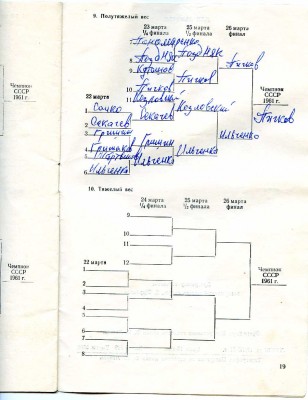 9. Полутяжелый вес
23 марта 25 марта 26 марта
¼ финала ½ финала финал
Пономаренко
Позняк
Позняк
Пигков
Пигков
Пигков
Козловский
22 марта
Сачко
Секачев
Секачев
Козловский
Гришин
Гришин
Ильченко
Ильченко
Ильченко
Ильченко
Чемпион
СССР
1961 г.
Пигков
10. Тяжелый вес
23 марта 25 марта 26 марта
¼ финала ½ финала финал
9
10
11
12
22 марта
1
2
3
4
5
6
7
8
Чемпион
СССР
1961 г.
Чемпион
СССР
1961 г.
Чемпион
СССР
1961 г.
19